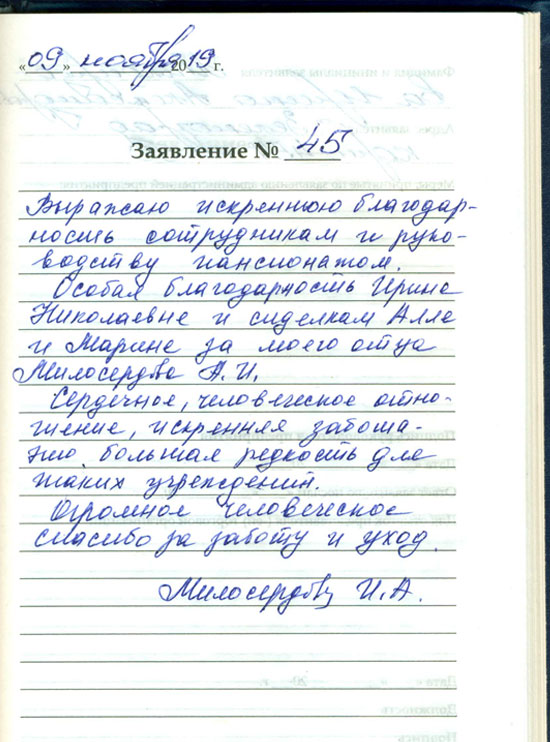 «09» ноября 2019 г.
Заявление № 45
Выражаю искреннюю благодар-
ность сотрудникам и руко-
водству пансионатом.
Особая благодарность Ирине
Николаевне и сиделкам Алле
и Марине за моего отца
Милосердова А.И.
Сердечное, человеческое отно-
шение, искренняя забота-
это большая редкость для
таких учреждений.
Огромное человеческое
спасибо за заботу и уход.
И.А.